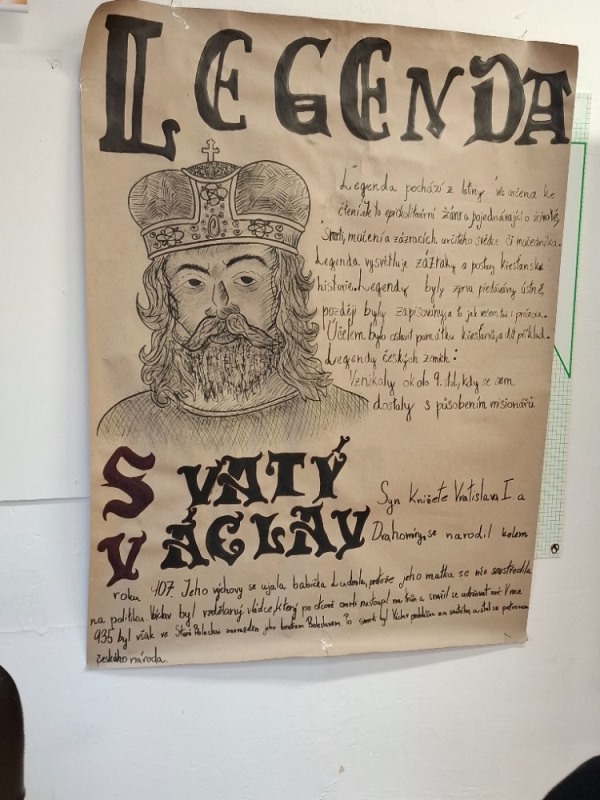 LEGENDA
Legenda pochází z latiny určena ke
čtení. Je to epický literární žánr a pojednávající o životě,
smrti, mučení a zázracích určitého světce či mučedníka.
Legenda vysvětluje zázraky a postavy křesťanské
historie. Legendy byly zprvu předávány ústně,
později byly zapisovány, a to jak veršem, tak i prózou.
Účelem bylo oslavit památku křesťanů, a dát příklad.
Legendy českých zemích:
Vznikaly okolo 9. stol, kdy se sem
dostaly s působením misionářů
SVATÝ
VÁCLAV
Syn Knížete Vratislava I. a
Drahomíry, se narodil kolem
roku 907. Jeho výchovy se ujala babička Ludmila, protože jeho matka se více soustředila
na politiku. Václav byl vzdělaný vládce, který po otcově smrti nastoupil na trůn a snažil se udržovat mír. V roce
935 byl však ve Staré Boleslavi zavražděn jeho bratrem Boleslavem. Po smrti byl Václav prohlášen za svatého a stal se patronem
českého národa.